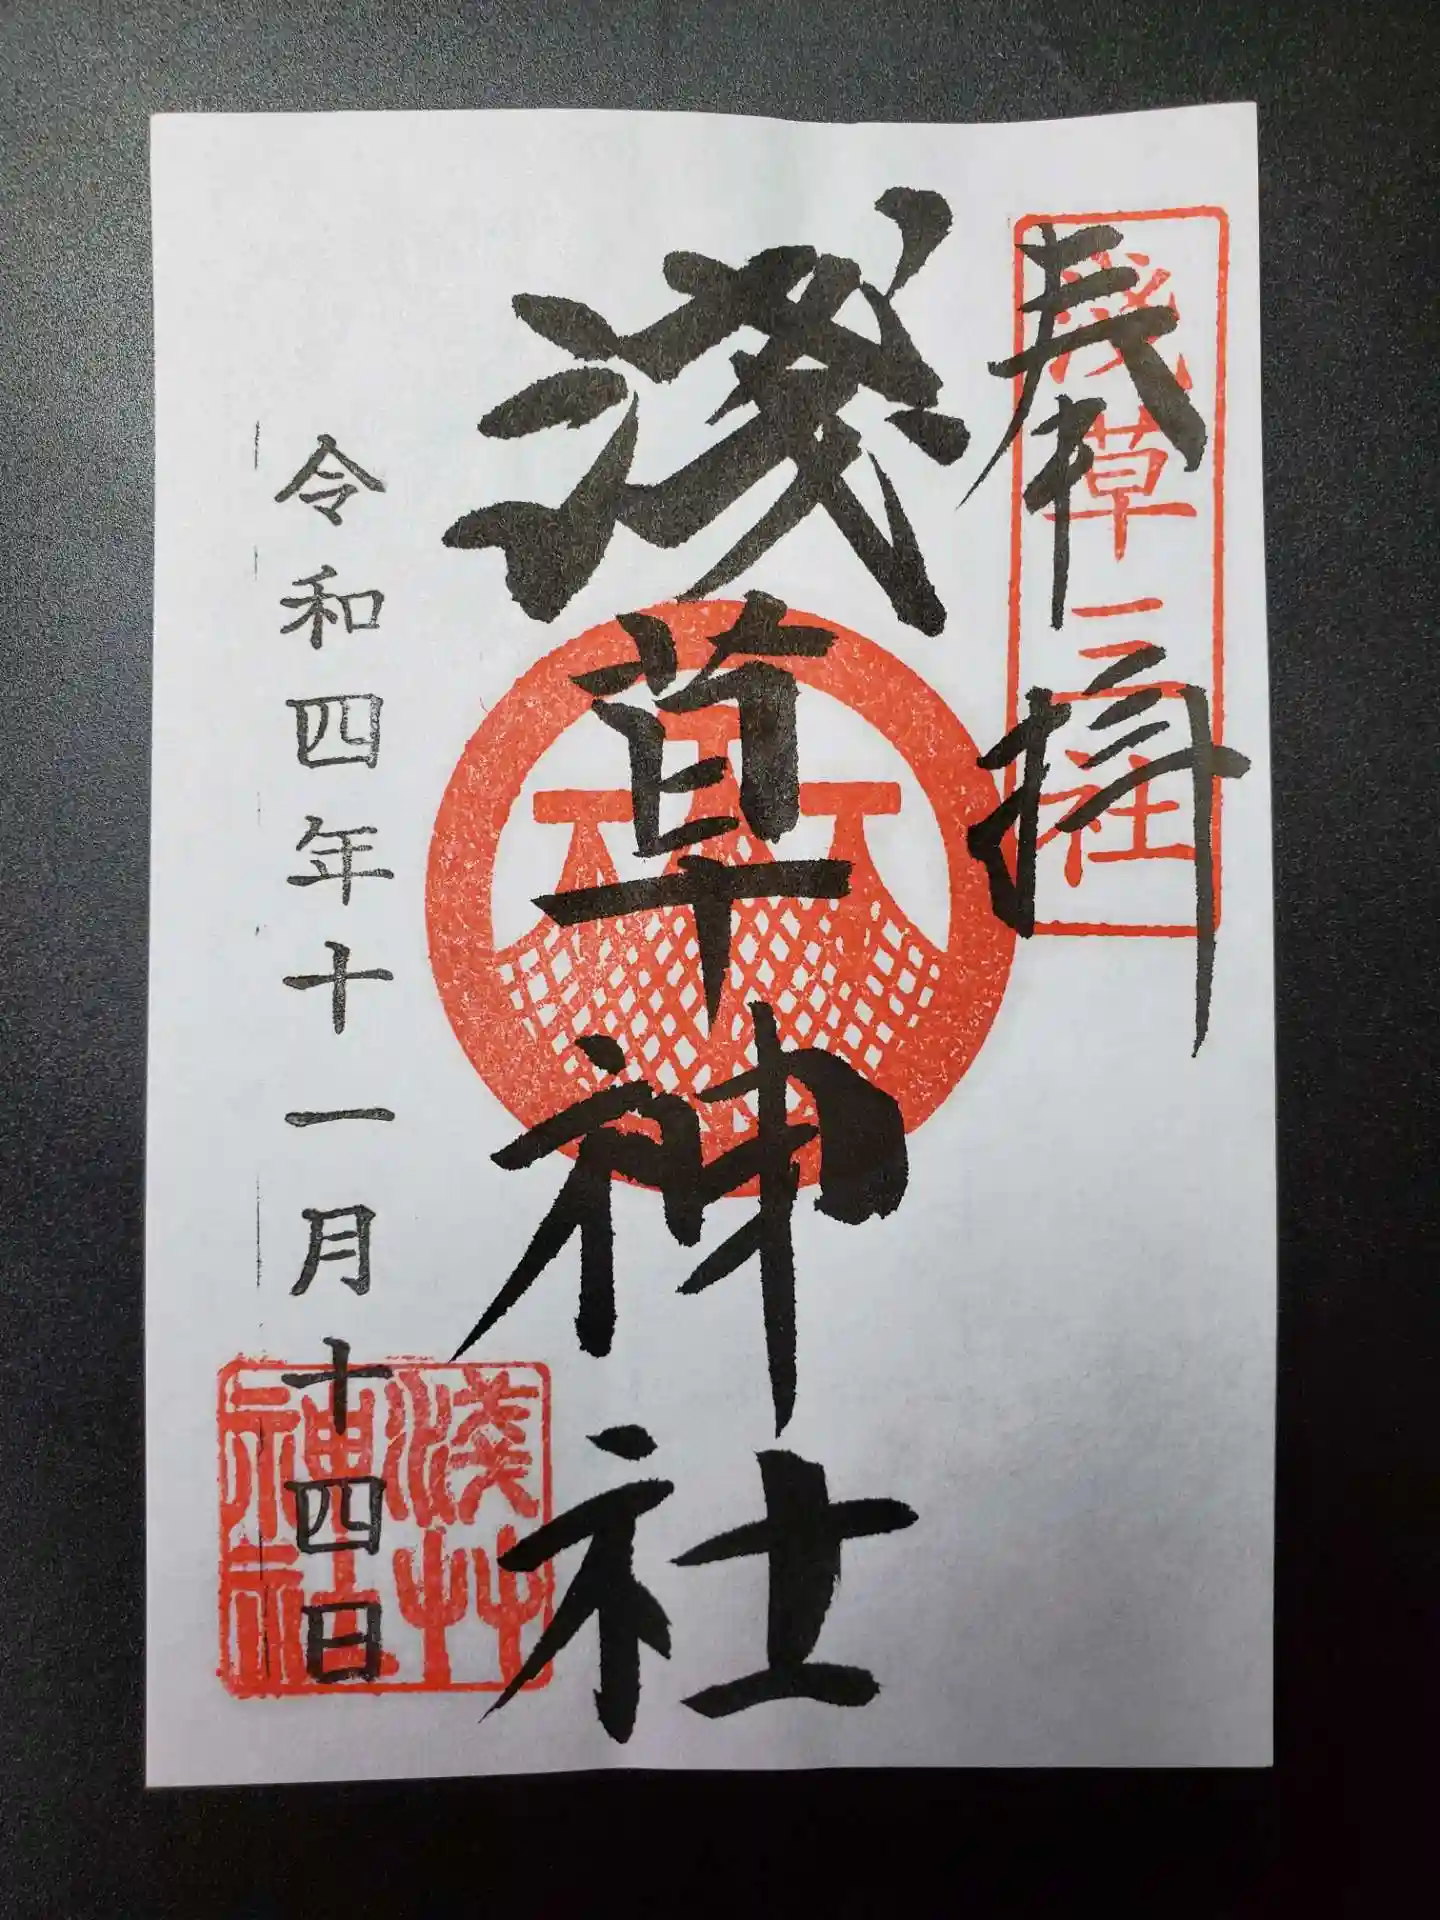 奉拝
淺草三社
淺草神社
令和四年十一月十四日
淺草
神社